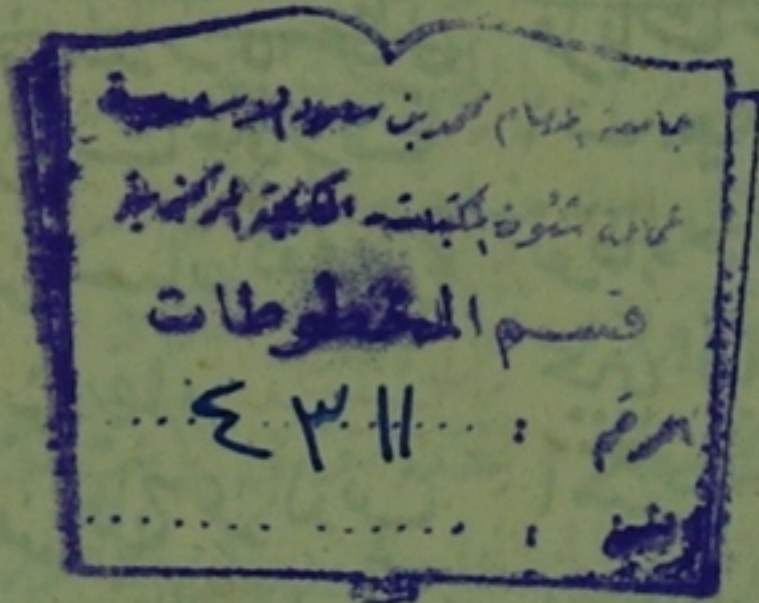 جامعة الإمام محمد بن سعود الإسلامية
عمادة شئون المكتبات المكتبة المركزية
قسم المخطوطات
الرقم : ٤٣١١